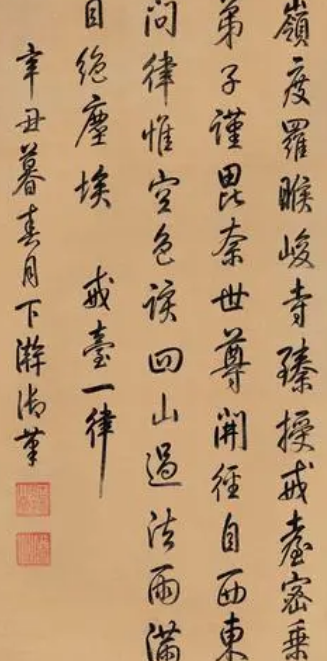 嶺度羅睺峻寺臻授戒臺密乘
弟子謹毘奈世尊開徑自西東
問律惟空色詼四山過法雨滿
目絶塵埃 戒臺一律
辛丑暮春月下澣御筆